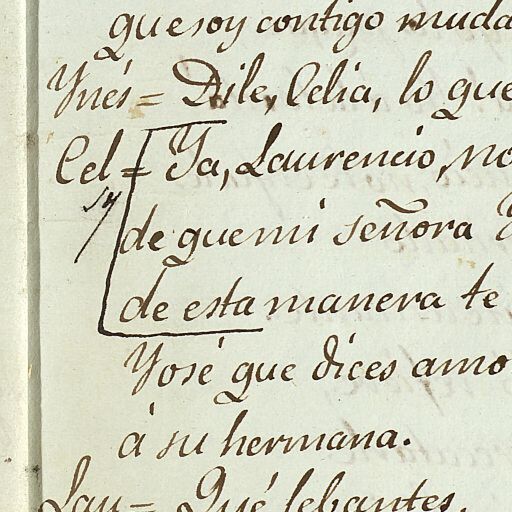 que soy contigo muda
Ynés = Dile, Celia, lo que
Cel = Ya, Laurencio, no
sy
de que mi señora Y
de esta manera te
Yo sé que dices amo
á su hermana.
Lau = Qué